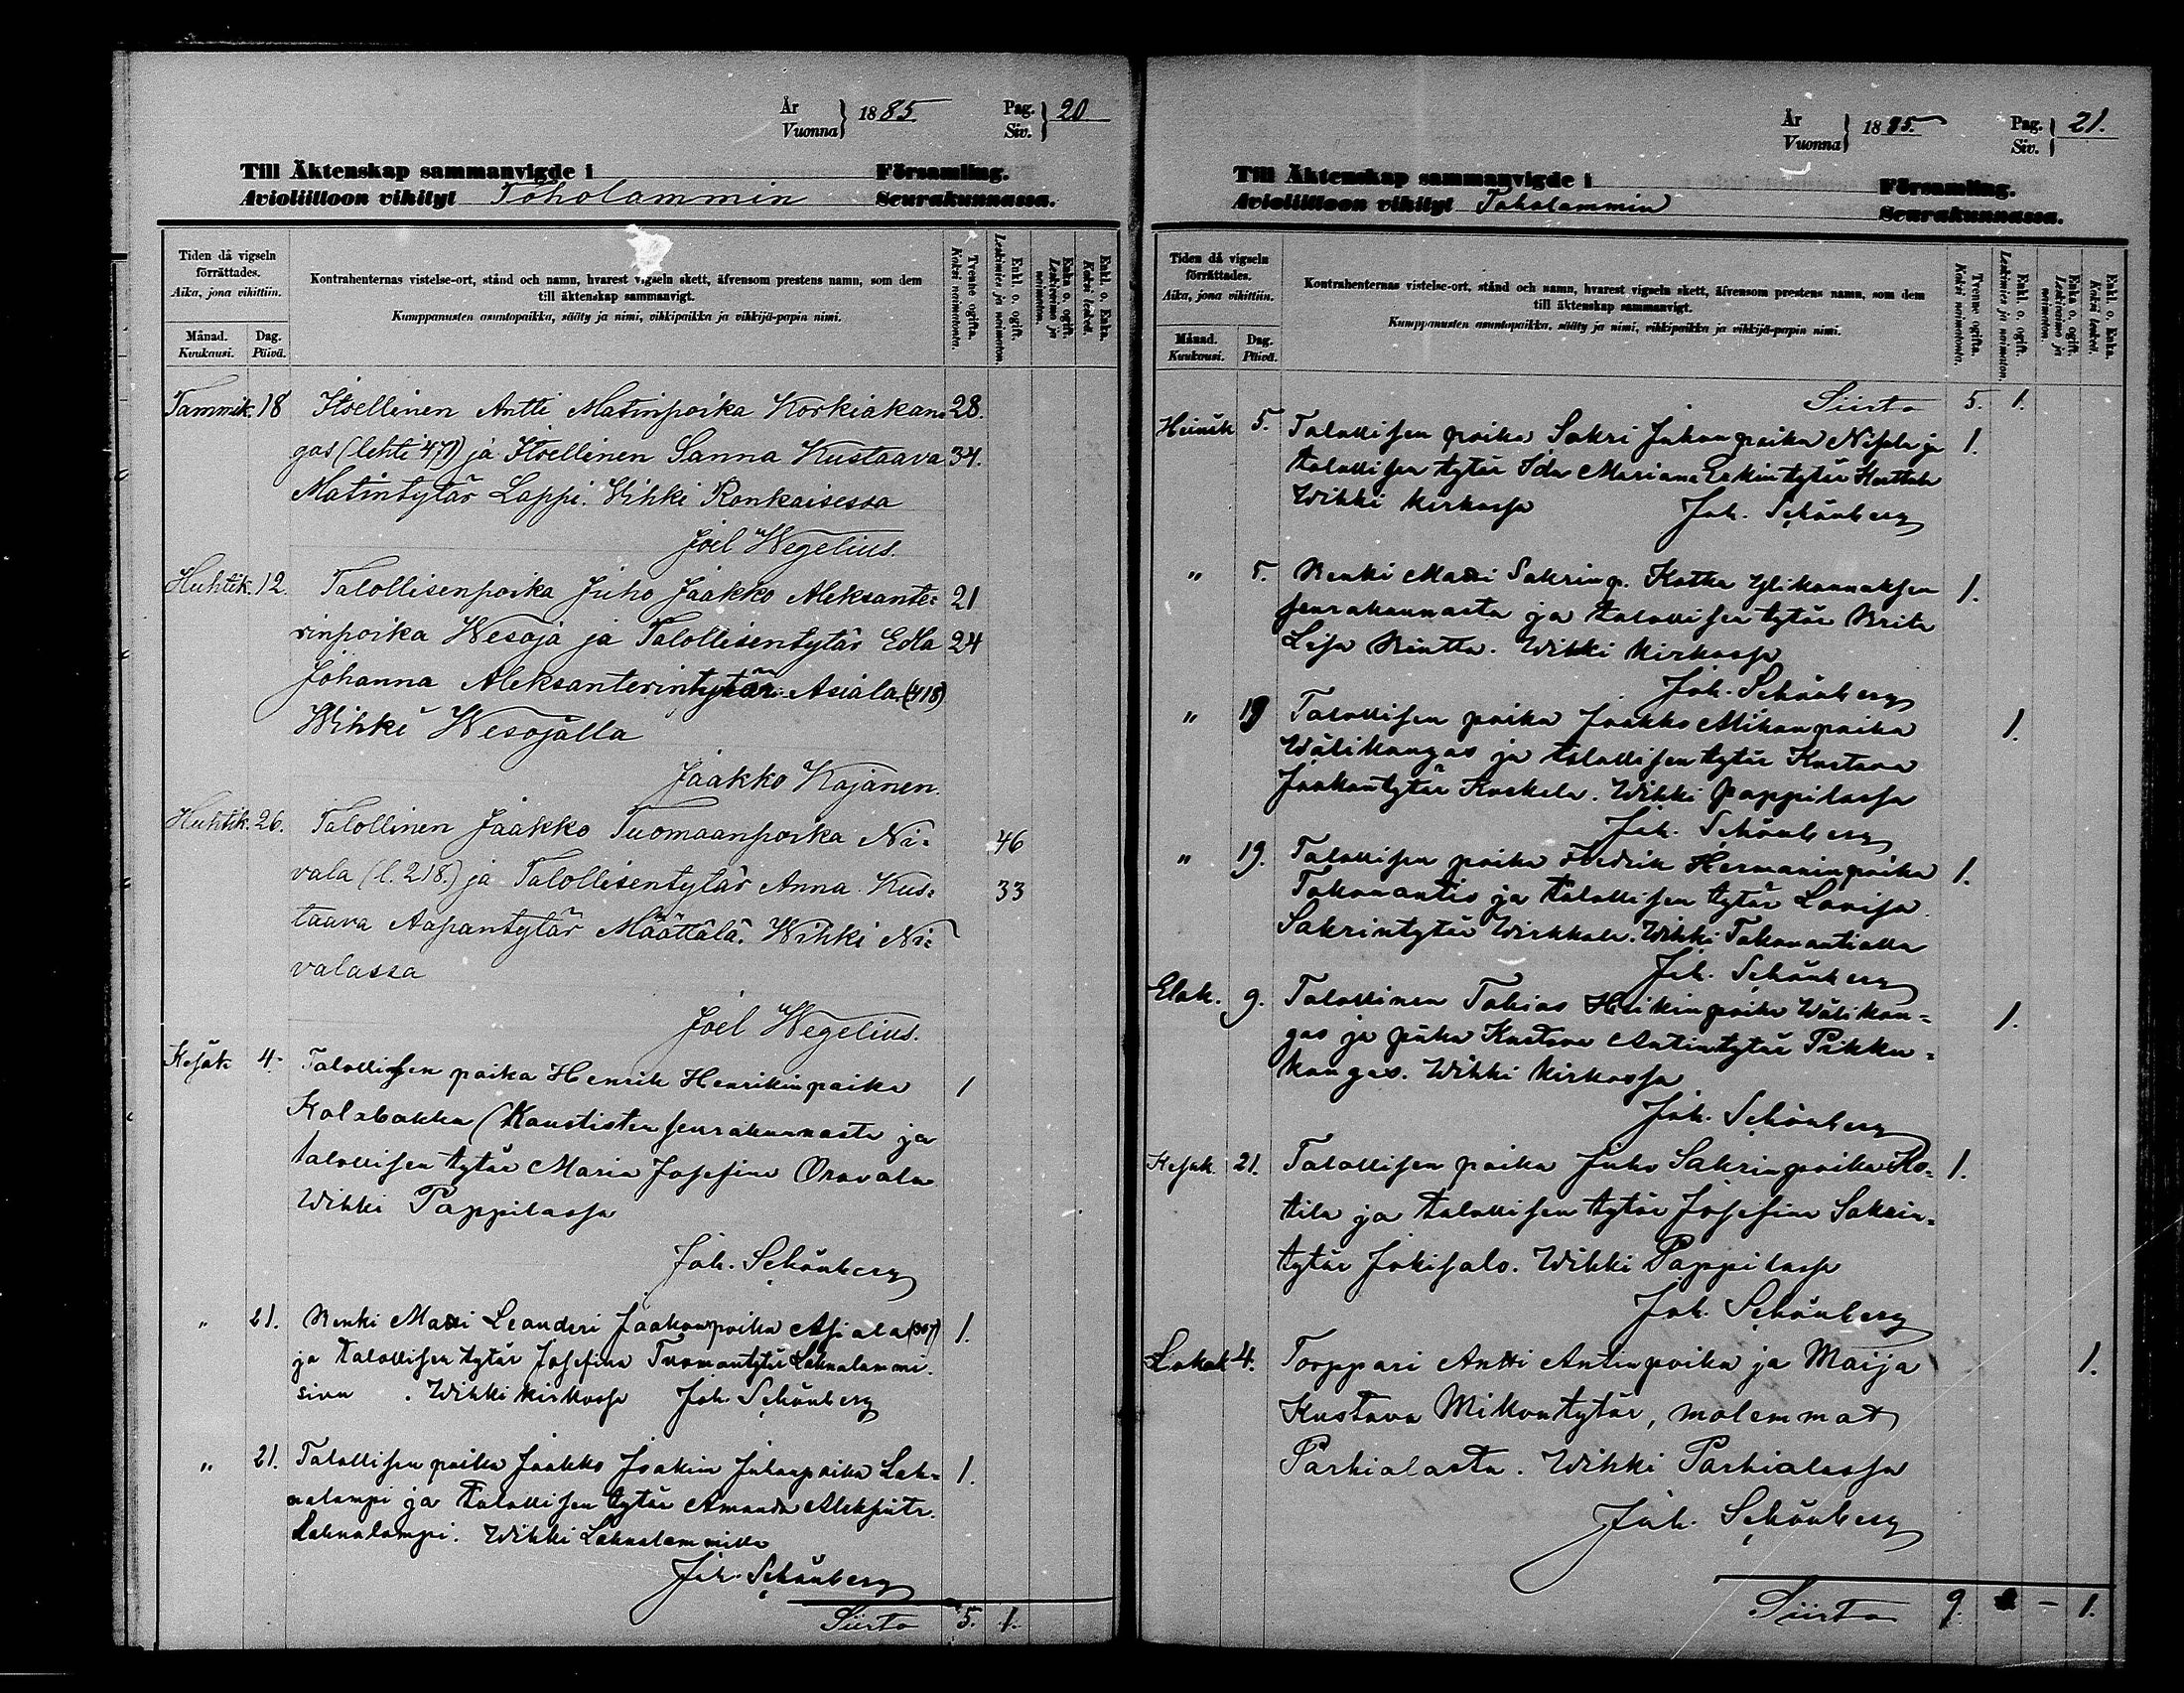 År
Vuonna } 1885
Pag.
Siv. } 20
Till Äktenskap sammanvigde i Församling.
Avioliittoon vihityt Toholammin Seurakunnassa.
Tiden då vigseln förrättades.
Aika, jona vihittiin.
Månad.
Kuukausi.
Dag.
Päivä.
Kontrahenternas vistelse-ort, stånd och namn, hvarest vigseln skett, äfvensom prestens namn, som dem
till äktenskap sammanvigt.
Kumppanusten asuntopaikka, sääty ja nimi, vihkipaikka ja vihkijä-papin nimi.
Tvenne ogifta.
Kaksi naimatonta.
Enkl. o. ogift.
Leskimies ja naimaton.
Enka o. ogift.
Leskivaimo ja naimaton.
Enkl. o. Enka.
Kaksi leskeä.
Tammik. 18 Itsellinen Antti Matinpoika Korkiakan= 28.
gas (lehti 471) ja Itsellinen Sanna Kustaava 34.
Matintytär Lappi. Vihki Ronkaisessa
Joel Wegelius.
Huhtik. 12. Talollisenpoika Juho Jaakko Aleksante= 21
rinpoika Wesoja ja Talollisentytär Edla 24
Johanna Aleksanterintytär Asiala (418)
Wihki Wesojalla
Jaakko Kajanen.
Huhtik. 26. Talollinen Jaakko Tuomaanpoika Ni= 46
vala (l. 218.) ja Talollisentytär Anna Kus= 33
taava Aapantytär Määttälä. Wihki Ni=
valassa
Joel Wegelius.
Kesäk 4. Talollisen poika Henrik Henrikinpoika 1
(Kaustisten seurakunnasta ja
talollisen tytär Maria Josefina Oravala
Wihki Pappilassa
Joh. Schönberg
" 21. Renki Matti Leanderi Jaakonpoika Asiala (307) 1.
ja talollisen tytär Josefina Tuomantytär Lahnalammi.
sivu . Wihki kirkossa Joh. Schönberg
" 21. Talollisen poika Jaakko Joakim Juhanpoika Lah= 1.
nalampi ja talollisen tytär Amanda
Lahnalampi. Wihki Lahnalammilla
Joh. Schönberg
Siirto 5. 1.
År
Vuonna } 1885.
Pag.
Siv. } 21.
Till Äktenskap sammanvigde i Församling.
Avioliittoon vihityt Toholammin Seurakunnassa.
Tiden då vigseln förrättades.
Aika, jona vihittiin.
Månad.
Kuukausi.
Dag.
Päivä.
Kontrahenternas vistelse-ort, stånd och namn, hvarest vigseln skett, äfvensom prestens namn, som dem
till äktenskap sammanvigt.
Kumppanusten asuntopaikka, sääty ja nimi, vihkipaikka ja vihkijä-papin nimi.
Tvenne ogifta.
Kaksi naimatonta.
Enkl. o. ogift.
Leskimies ja naimaton.
Enka o. ogift.
Leskivaimo ja naimaton.
Enkl. o. Enka.
Kaksi leskeä.
Siirto 5. 1.
Heinäk 5. Talollisen poika Sakri Juhanpoika ja 1.
talollisen tytär Ida Mariana Erkintytär
Wihki kirkossa Joh. Schönberg
" 5. Renki Matti Sakrinp. Kotka Ylikannuksen 1.
seurakunnasta ja talollisen tytär Brita
Lisa Rintta. Wihki kirkossa
Joh. Schönberg
" 19 Talollisen poika Jaakko Mikonpoika 1.
Wälikangas ja talollisen tytär Kustava
Jaakontytär Koskela. Wihki pappilassa
Joh. Schönberg
" 19. Talollisen poika Fredrik Hermaninpoika 1.
Takonantio ja talollisen tytär Lovisa
Sakrintytär Wirkkala. Wihki Takonantialla
Joh. Schönberg
Elok. 9. Talollinen Tobias Heikinpoika Wälikan= 1.
gas ja piika Kustava Antintytär Pikku=
kangas. Wihki kirkossa
Joh. Schönberg
Kesäk. 21. Talollisen poika Juho Sakrinpoika Ko= 1.
tila ja talollisen tytär Josefina Sakrin=
tytär Jokisalo. Wihki Pappilassa
Joh. Schönberg
Lokak 4. Torppari Antti Antinpoika ja Maija 1.
Kustava Mikontytär, molemmat
Parhialasta. Wihki Parhialassa
Joh. Schönberg
Siirto 9. – 1.